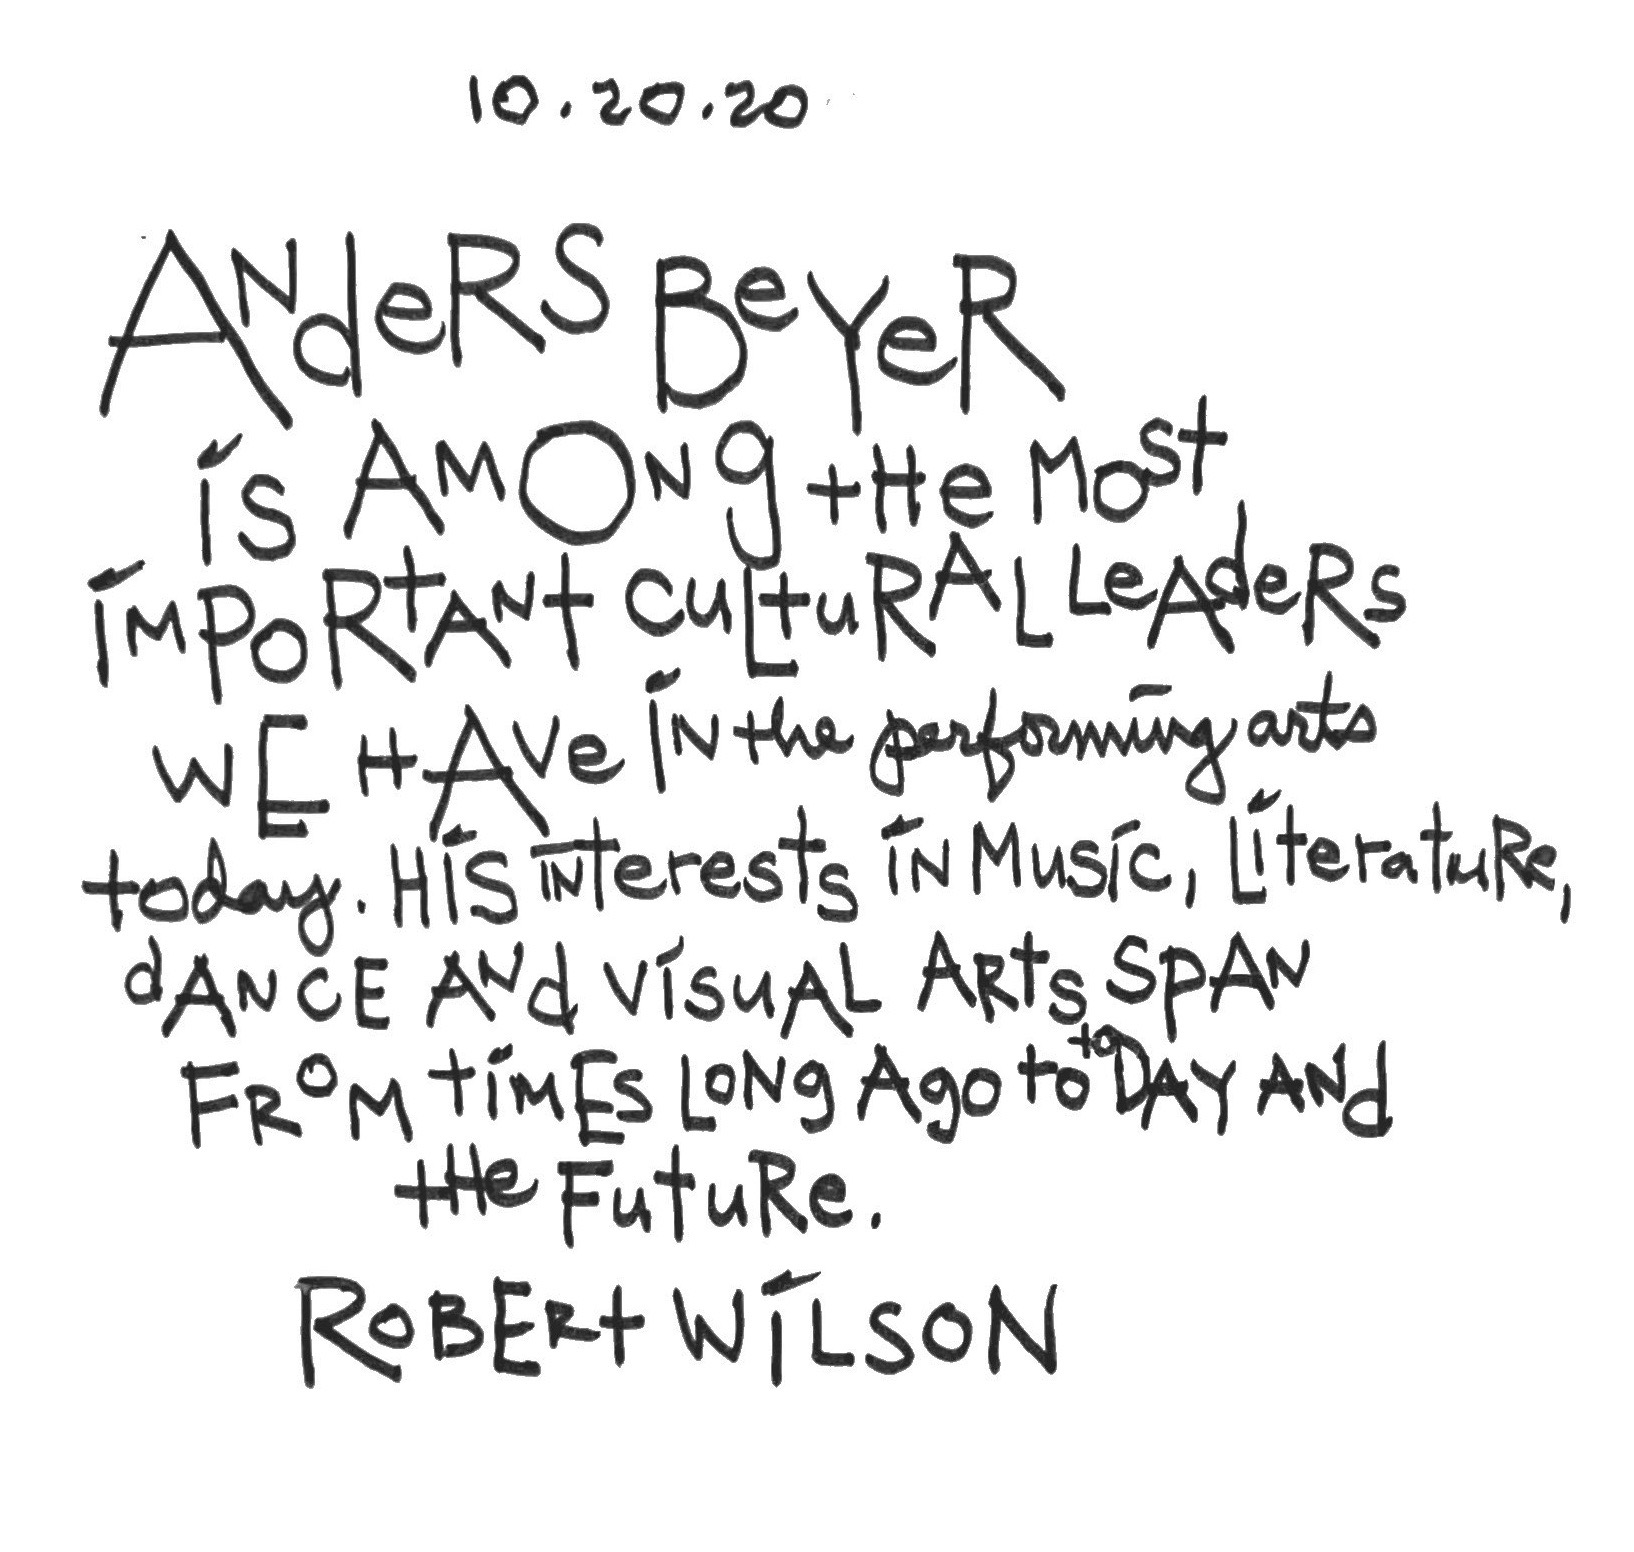 10.20.20
ANdeRS BeYeR
is AMONg tHe MOst
iMPORtANt CuLtuRAL LeAdeRs
WE HAVe iN the performing arts
today. HiS iNterests iN Music, Literature,
dANCE ANd visuAL ARts SPAN
FROM tiMEs LONg Ago to toDAY ANd
tHe FutuRe.
ROBERt WiLSON